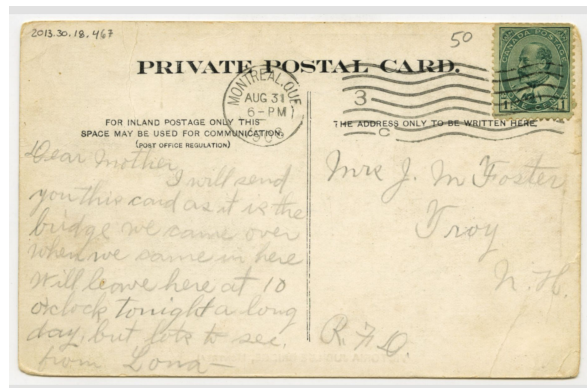 2013.30.18.467
50
PRIVATE POSTAL CARD.
CANADA POSTAGE
1 1
MONTREAL, QUE.
AUG 31
6-PM
3
C
FOR INLAND POSTAGE ONLY THIS
SPACE MAY BE USED FOR COMMUNICATION.
(POST OFFICE REGULATION)
THE ADDRESS ONLY TO BE WRITTEN HERE
Dear Mother
I will send
you this card as it is the
bridge we came over
when we came in here
Will leave here at 10
oclock tonight a long
day, but lots to see.
from Lona
Mrs J. M Foster
Troy
N. H.
R. F. D.